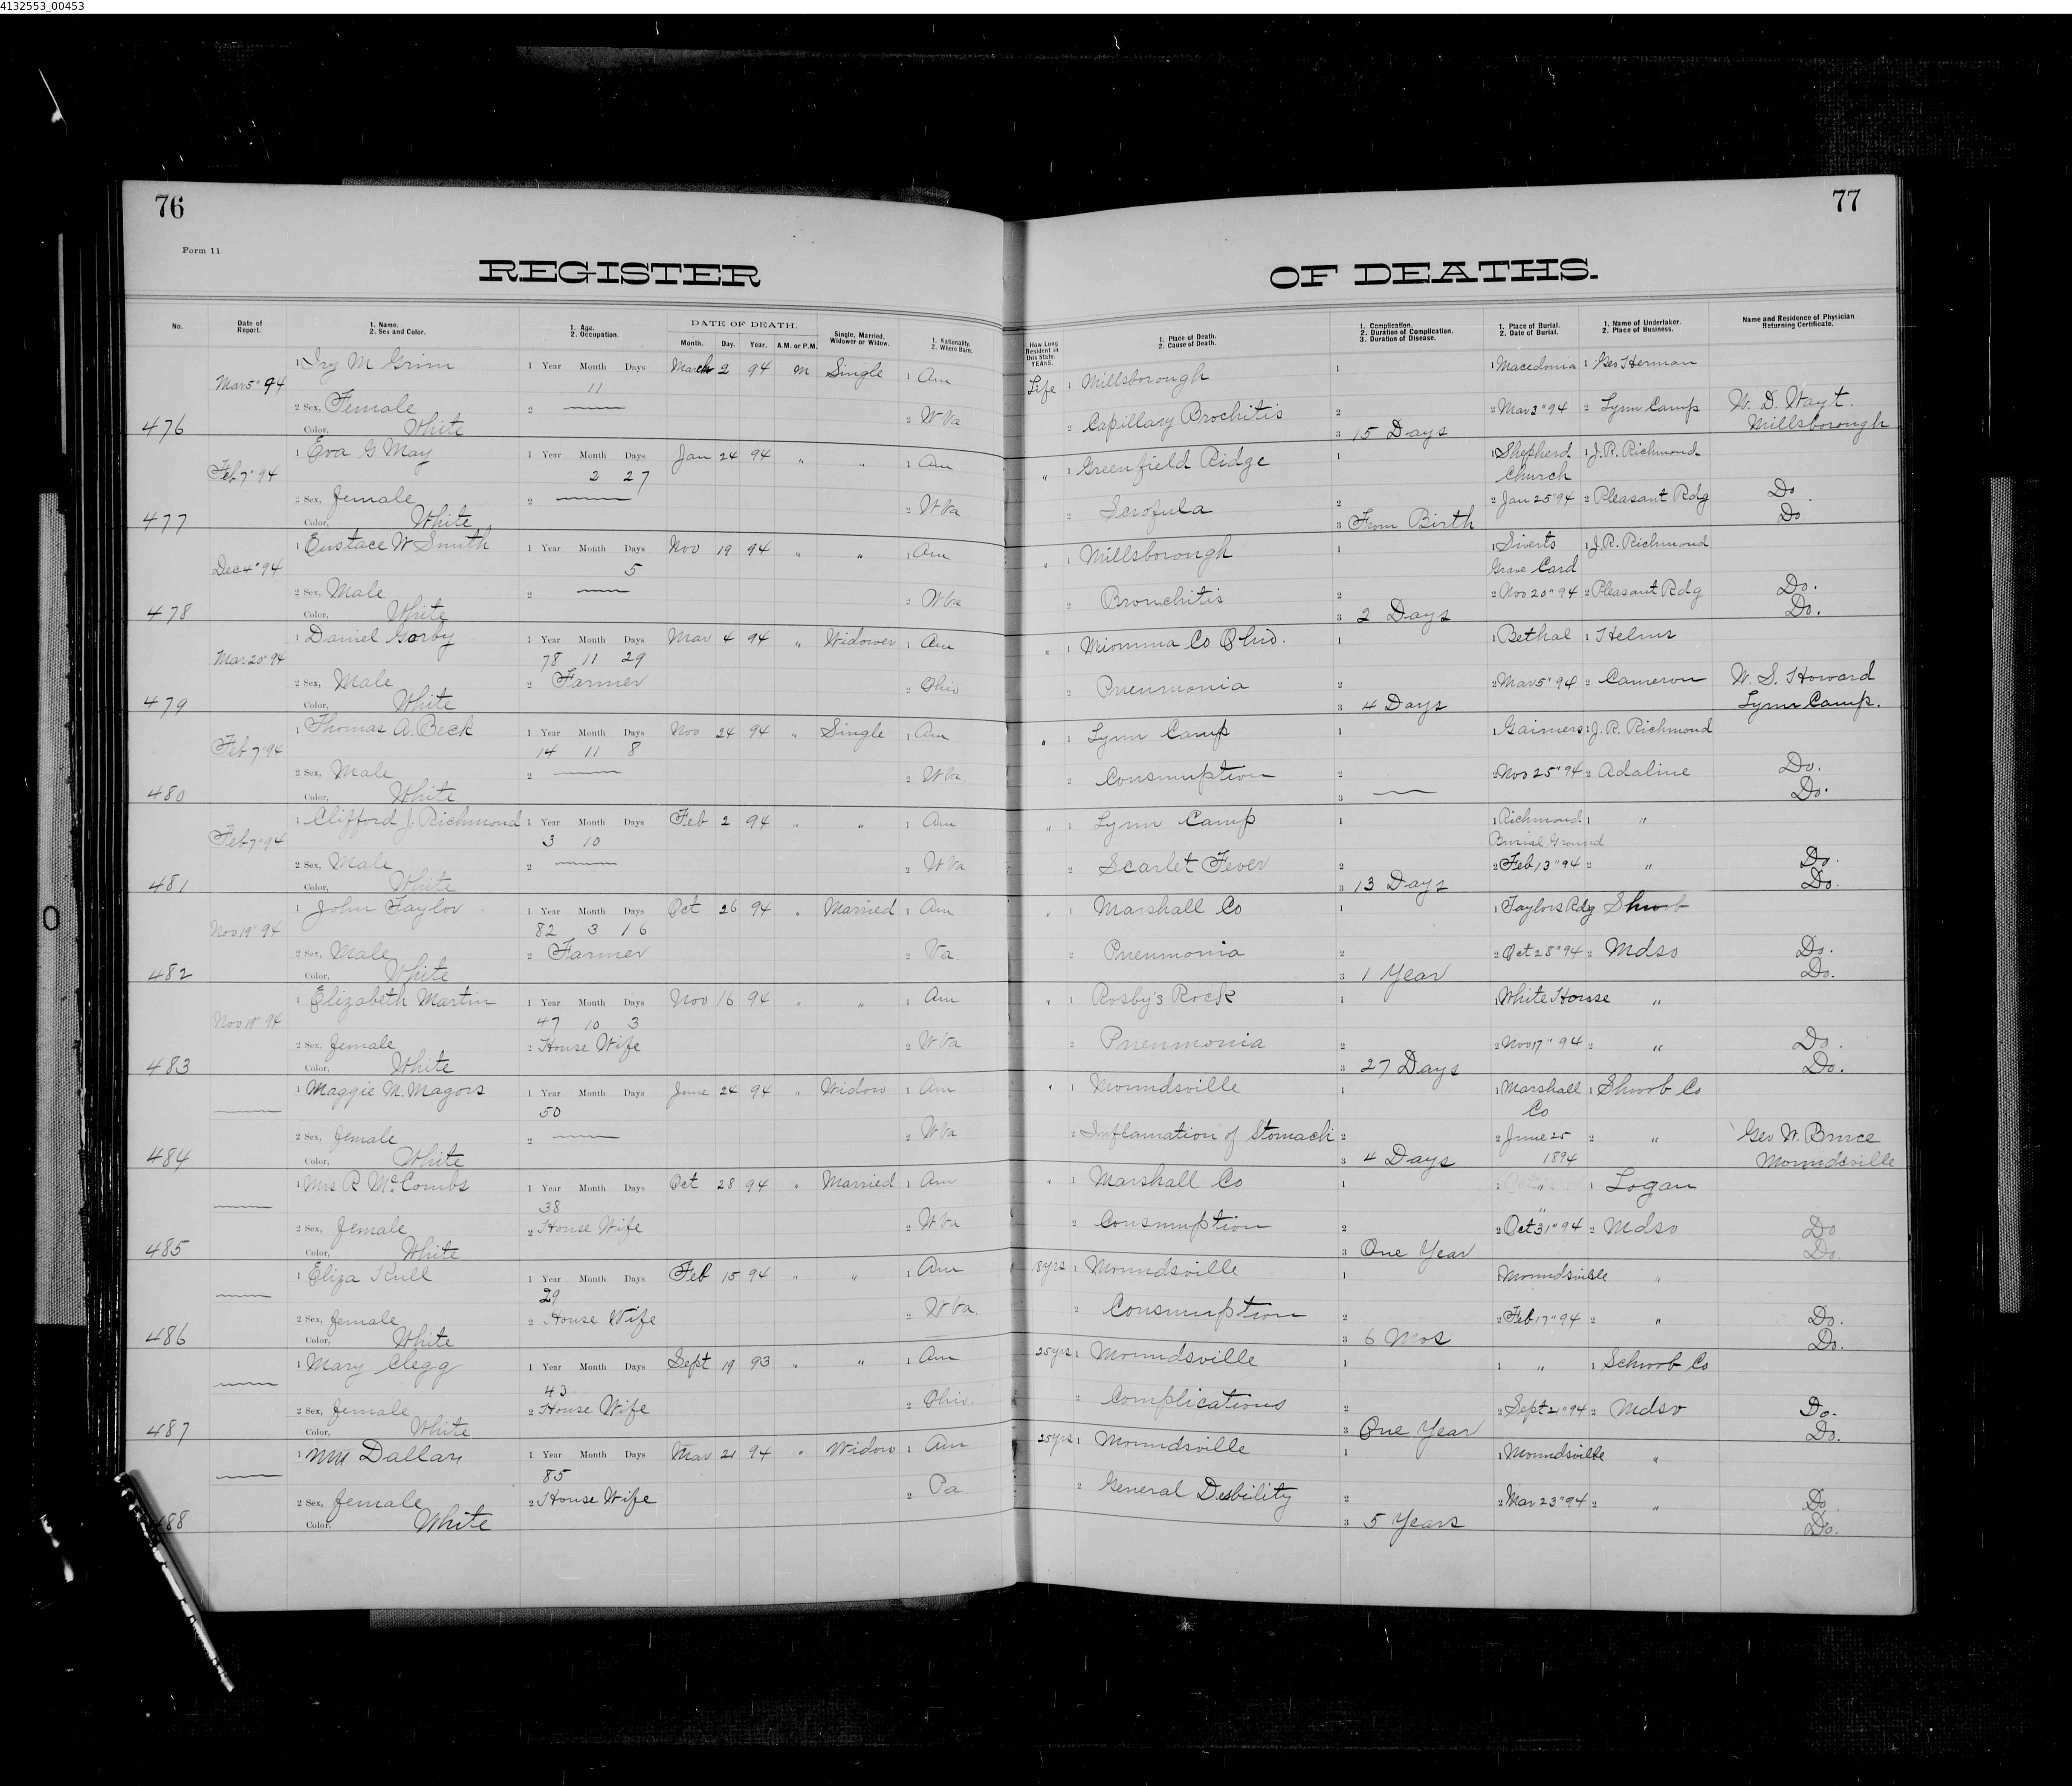 4132553_00453
76
Form 11.
REGISTER
No.
Date of Report.
1. Name. 2. Sex and Color.
1. Age. 2. Occupation.
DATE OF DEATH.
Month. Day. Year. A.M. or P.M.
Single, Married, Widower or Widow.
1. Nationality. 2. Where Born.
77
OF DEATHS.
How Long Resident in this State. YEARS.
1. Place of Death. 2. Cause of Death.
1. Complication. 2. Duration of Complication. 3. Duration of Disease.
1. Place of Burial. 2. Date of Burial.
1. Name of Undertaker. 2. Place of Business.
Name and Residence of Physician Returning Certificate.
Mar 5" 94 1 Ivy M Grim 1 Year Month Days March 2 94 M Single 1 Am Life 1 Millsborough 1 1 Macedonia 1 Geo Herman
11
2 Sex, Female 2 2 W Va 2 Capillary Brochitis 2 2 Mar 3" 94 2 Lynn Camp W. D. Wayt.
476 Color, White 3 15 Days Millsborough
Feb 7" 94 1 Eva G May 1 Year Month Days Jan 24 94 " " 1 Am " 1 Greenfield Ridge 1 1 Shepherd Church 1 J. R. Richmond
2 27
2 Sex, female 2 2 W Va 2 Scrofula 2 2 Jan 25" 94 2 Pleasant Rdg Do
477 Color, White 3 From Birth Do
Dec 4" 94 1 Eustace W Smith 1 Year Month Days Nov 19 94 " " 1 Am " 1 Millsborough 1 1 Siverts Grave Card 1 J. R. Richmond
5
2 Sex, Male 2 2 W Va 2 Bronchitis 2 2 Nov 20" 94 2 Pleasant Rdg Do.
478 Color, White 3 2 Days Do.
Mar 20" 94 1 Daniel Gorby 1 Year Month Days Mar 4 94 " Widower 1 Am " 1 Co Ohio. 1 1 Bethal 1 Helms
78 11 29
2 Sex, Male 2 Farmer 2 Ohio 2 Pneumonia 2 2 Mar 5" 94 2 Cameron W. S. Howard
479 Color, White 3 4 Days Lynn Camp.
Feb 7" 94 1 Thomas A. Beck 1 Year Month Days Nov 24 94 " Single 1 Am " 1 Lynn Camp 1 1 Gaimers 1 J. R. Richmond
14 11 8
2 Sex, Male 2 2 W Va. 2 Consumption 2 2 Nov 25" 94 2 Adaline Do.
480 Color, White 3 Do.
Feb 7" 94 1 Clifford J. Richmond 1 Year Month Days Feb 2 94 " " 1 Am " 1 Lynn Camp 1 1 Richmond Burial Ground 1 "
3 10
2 Sex, Male 2 2 W Va 2 Scarlet Fever 2 2 Feb 13" 94 2 " Do.
481 Color, White 3 13 Days Do.
Nov 19" 94 1 John Taylor 1 Year Month Days Oct 26 94 " Married 1 Am " 1 Marshall Co 1 1 Taylors Rdg Shwob
82 3 16
2 Sex, Male 2 Farmer 2 Va. 2 Pneumonia 2 2 Oct 28" 94 2 Mdso Do.
482 Color, White 3 1 Year Do.
Nov 19" 94 1 Elizabeth Martin 1 Year Month Days Nov 16 94 " " 1 Am " 1 Rosby's Rock 1 1 White House "
47 10 3
2 Sex, female 2 House Wife 2 W Va 2 Pneumonia 2 2 Nov 17" 94 2 " Do.
483 Color, White 3 27 Days Do.
1 Maggie M. Magors 1 Year Month Days June 24 94 " Widow 1 Am " 1 Moundsville 1 1 Marshall Co 1 Shwob Co
50
2 Sex, female 2 2 W Va 2 Inflamation of Stomach 2 2 June 25 1894 2 " Geo W. Bruce
484 Color, White 3 4 Days Moundsville
1 Mrs R McCombs 1 Year Month Days Oct 28 94 " Married 1 Am " 1 Marshall Co 1 1 " 1 Logan
38
2 Sex, female 2 House Wife 2 W Va 2 Consumption 2 2 Oct 31" 94 2 Mdso Do
485 Color, White 3 One Year Do.
1 Eliza Kull 1 Year Month Days Feb 15 94 " " 1 Am 18 yrs 1 Moundsville 1 1 Moundsville "
29
2 Sex, female 2 House Wife 2 W Va 2 Consumption 2 2 Feb 17" 94 2 " Do.
486 Color, White 3 6 Mos Do.
1 Mary Clegg 1 Year Month Days Sept 19 93 " " 1 Am 25 yrs 1 Moundsville 1 1 " 1 Schwob Co
43
2 Sex, female 2 House Wife 2 Ohio. 2 Complications 2 2 Sept 21" 94 2 Mdso Do.
487 Color, White 3 One Year Do.
1 Dallas 1 Year Month Days Mar 21 94 " Widow 1 Am 25 yrs 1 Moundsville 1 1 Moundsville "
85
2 Sex, female 2 House Wife 2 Pa. 2 General Desbility 2 2 Mar 23" 94 2 " Do.
488 Color, White 3 5 Years Do.